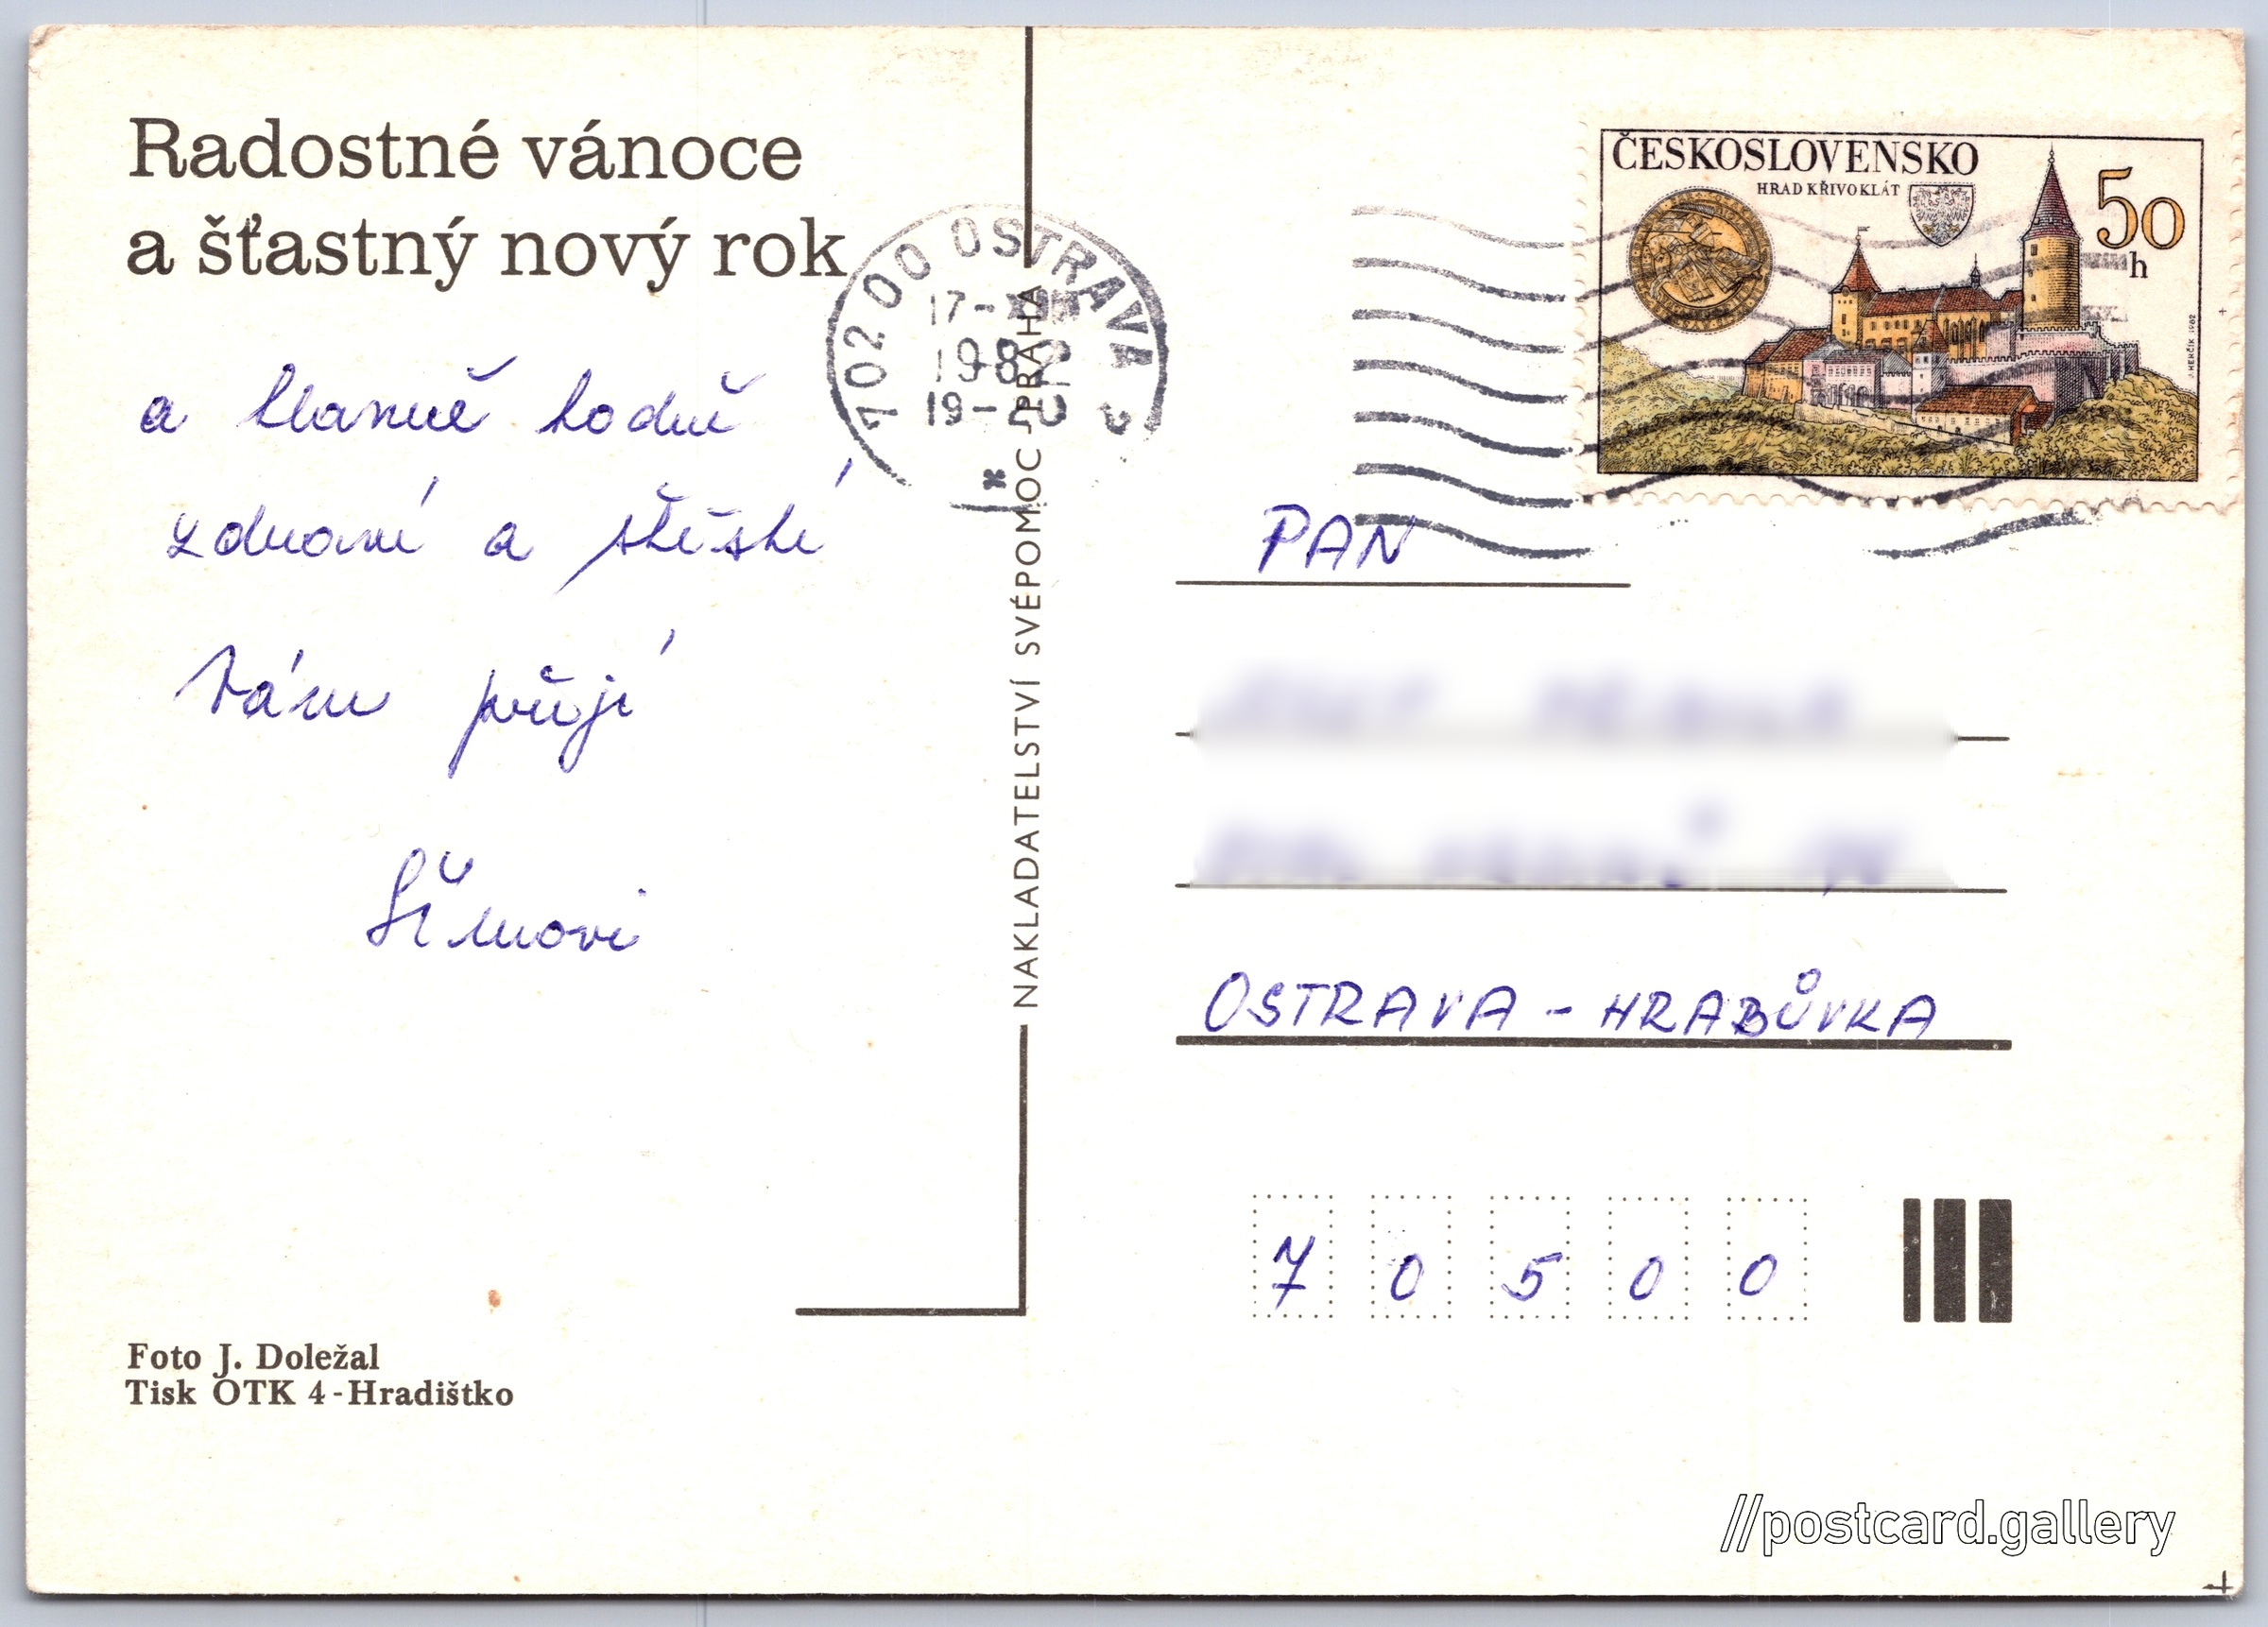 Radostné vánoce
a šťastný nový rok
a hlavně hodně
zdraví a štěstí
Vám přejí
Šímovi
Foto J. Doležal
Tisk OTK 4-Hradištko
NAKLADATELSTVÍ SVÉPOMOC - PRAHA
702 00 OSTRAVA 2
17-XII
1982
19-20
*
ČESKOSLOVENSKO
HRAD KŘIVOKLÁT
50
h
J. HERČÍK 1982
PAN
OSTRAVA - HRABŮVKA
70500
//postcard.gallery